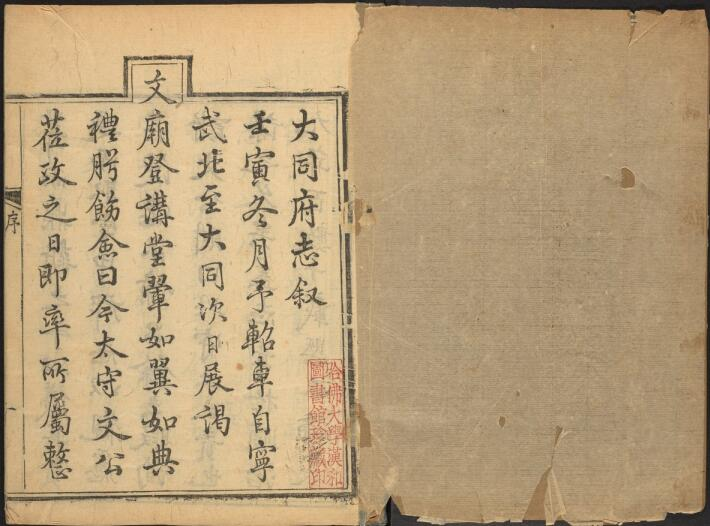 大同府志叙
壬寅冬月予軺車自寧
武北至大同次日展謁
文廟登講堂翬如翼如典
禮腭飭僉曰今太守文公
蒞政之日即率所屬整
序
哈佛大學漢和
圖書館珍藏印